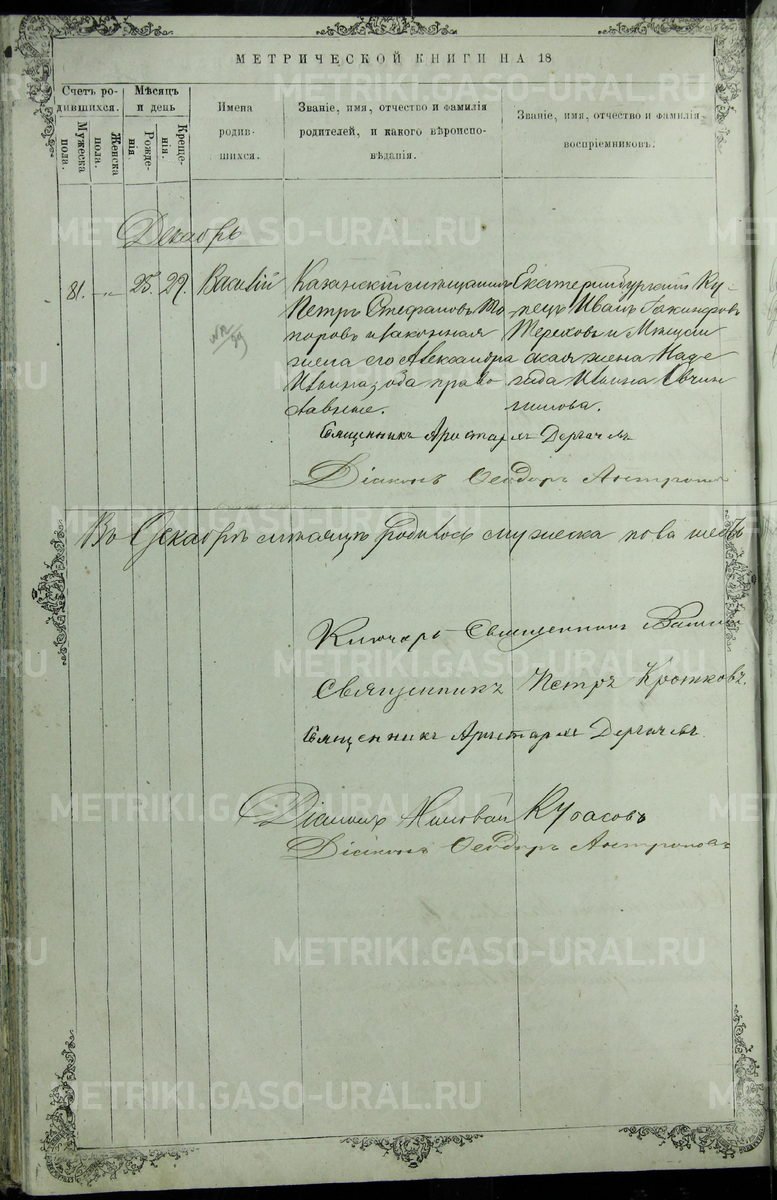 МЕТРИЧЕСКОЙ КНИГИ НА 18
Счетъ ро-
дившихся.
Мужеска
пола.
Женска
пола.
Мѣсяцъ
и день
Рожде-
нія
Креще-
нія.
Имена
родив-
шихся.
Званіе, имя, отчество и фамилія
родителей, и какого вѣроиспо-
вѣданія.
Званіе, имя, отчество и фамилія
воспріемниковъ.
Декабрь
81. —"— 25. 29. Василій
Казанскій мѣщанинъ
Петръ Стефановъ То
поровъ и законная
жена его Александра
Ивына, оба право
славные.
Екатеринбургскій Ку-
пецъ Иванъ
Тереховъ и Мѣщан
ская жена Наде
жда Ивына Овчин
никова.
Священникъ Аристархъ Дергачевъ
Діаконъ Ѳеодоръ
Въ Декабрѣ мѣсяцѣ родилось мужеска пола шесть
Ключарь Священникъ
Священникъ Петръ Кротковъ.
Священникъ Аристархъ Дергачевъ
Діаконъ Кубасовъ
Діаконъ Ѳеодоръ
METRIKI.GASO-URAL.RU